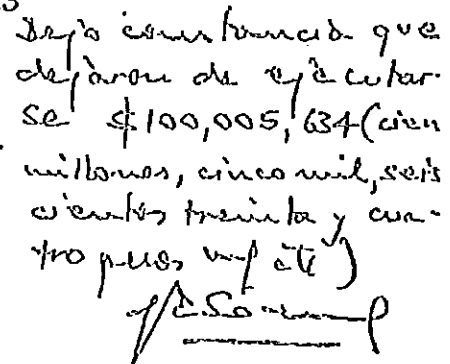 Dejo constancia que
dejaron de ejecutar-
se $100,005,634 (cien
millones, cinco mil, seis
cientos treinta y cua-
tro pesos